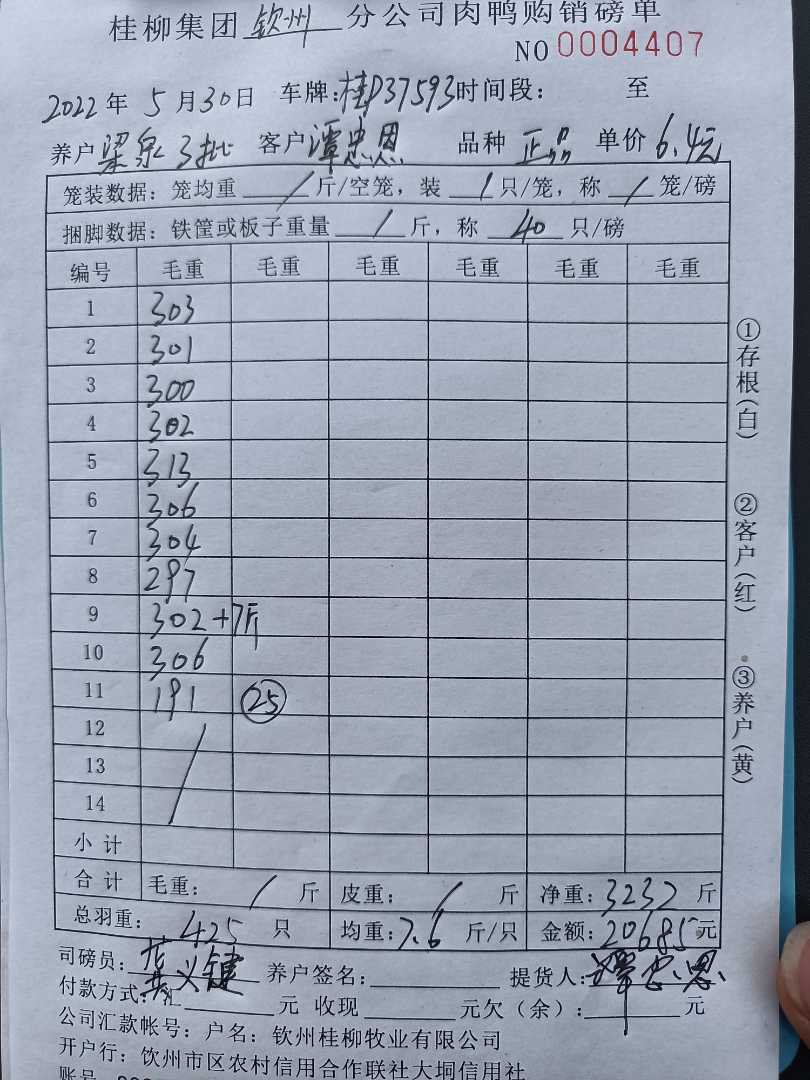 桂柳集团 钦州 分公司肉鸭购销磅单
NO 0004407
2022年 5月30日 车牌:桂P37593 时间段: 至
养户 梁泉 3批 客户 谭忠恩 品种 正品 单价 6.4元
笼装数据: 笼均重 / 斤/空笼, 装 / 只/笼, 称 / 笼/磅
捆脚数据: 铁筐或板子重量 / 斤, 称 40 只/磅
编号 毛重 毛重 毛重 毛重 毛重 毛重
1 303
2 301
3 300
4 302
5 313
6 306
7 304
8 297
9 302+7斤
10 306
11 191 25
12
13
14
小计
合计 毛重: / 斤 皮重: / 斤 净重: 3232 斤
总羽重: 425 只 均重: 7.6 斤/只 金额: 20685元
司磅员: 义键 养户签名: 提货人: 谭忠恩
付款方式: 汇 元 收现 元欠(余): 元
公司汇款帐号: 户名: 钦州桂柳牧业有限公司
开户行: 钦州市区农村信用合作联社大垌信用社
账号
①存根(白)
②客户(红)
③养户(黄)